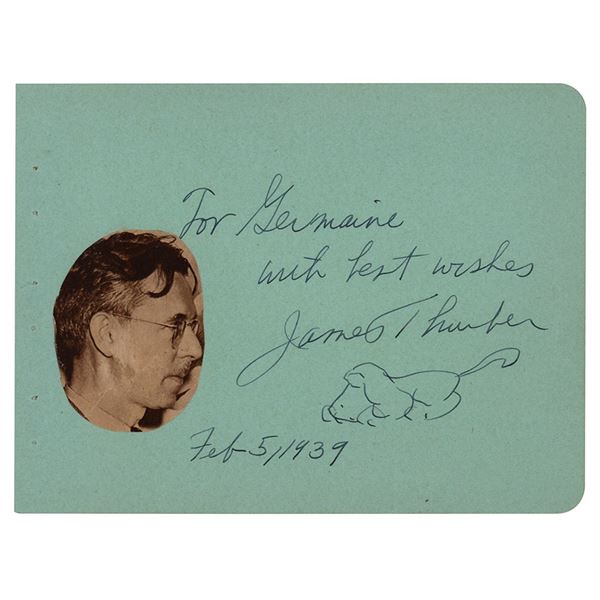 For Germaine
with best wishes
James Thurber
Feb 5, 1939